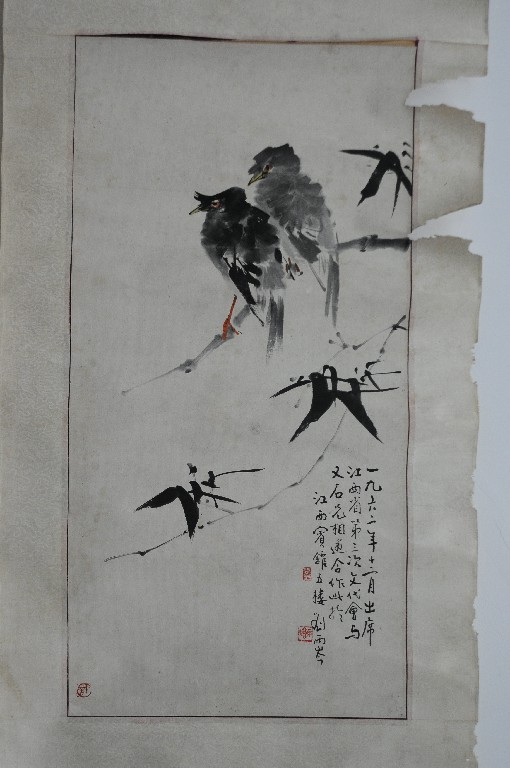 一九六二年十二月出席
江西省第三次文代會与
又石兄相遇合作此於
江西賓館五樓 劉雨岑